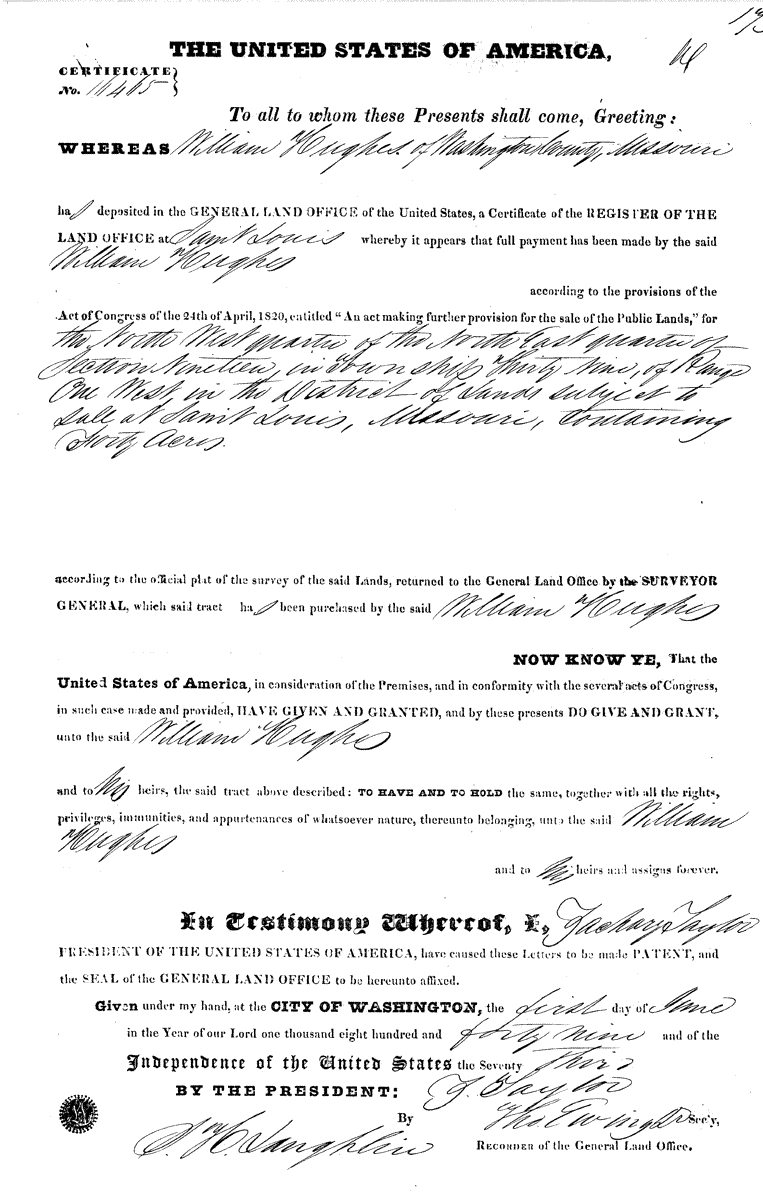 THE UNITED STATES OF AMERICA,
CERTIFICATE
No. 11465
To all to whom these Presents shall come, Greeting:
WHEREAS William Hughes. of Washington County, Missouri
has deposited in the GENERAL LAND OFFICE of the United States, a Certificate of the REGISTER OF THE
LAND OFFICE at Saint Louis whereby it appears that full payment has been made by the said
William Hughes
according to the provisions of the
Act of Congress of the 24th of April, 1820, entitled "An act making further provision for the sale of the Public Lands," for
the North West quarter of the North East quarter of
Section Nineteen, in Township Thirty Nine, of Range
One West, in the District of Lands subject to
Sale at Saint Louis, Missouri, Containing
Forty Acres.
according to the official plat of the survey of the said Lands, returned to the General Land Office by the SURVEYOR
GENERAL, which said tract has been purchased by the said William Hughes
NOW KNOW YE, That the
United States of America, in consideration of the Premises, and in conformity with the several acts of Congress,
in such case made and provided, HAVE GIVEN AND GRANTED, and by these presents DO GIVE AND GRANT,
unto the said William Hughes
and to his heirs, the said tract above described: TO HAVE AND TO HOLD the same, together with all the rights,
privileges, immunities, and appurtenances of whatsoever nature, thereunto belonging, unto the said William
Hughes
and to his heirs and assigns forever.
In Testimony Whereof, I, Zachary Taylor
PRESIDENT OF THE UNITED STATES OF AMERICA, have caused these Letters to be made PATENT, and
the SEAL of the GENERAL LAND OFFICE to be hereunto affixed.
Given under my hand, at the CITY OF WASHINGTON, the first day of June
in the Year of our Lord one thousand eight hundred and forty nine and of the
Independence of the United States the Seventy Third
BY THE PRESIDENT: Z. Taylor
By Tho. Ewing Jr Sec'y,
S. H. Laughlin RECORDER of the General Land Office.